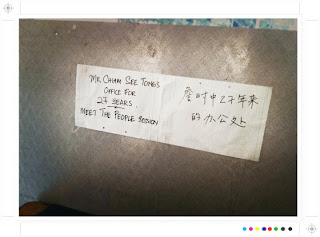 MR. CHIAM SEE TONG'S
OFFICE FOR
27 YEARS.
MEET THE PEOPLE SESSION
詹时中27年来
的办公处